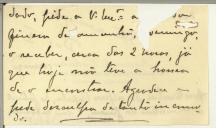 dado, pede a V. Exª a
fineza de amanhã, domingo,
o receber, cerca das 2 horas, já
que hoje não teve a honra
de o encontrar. Agradece e
pede desculpa de tanto incomo
do.